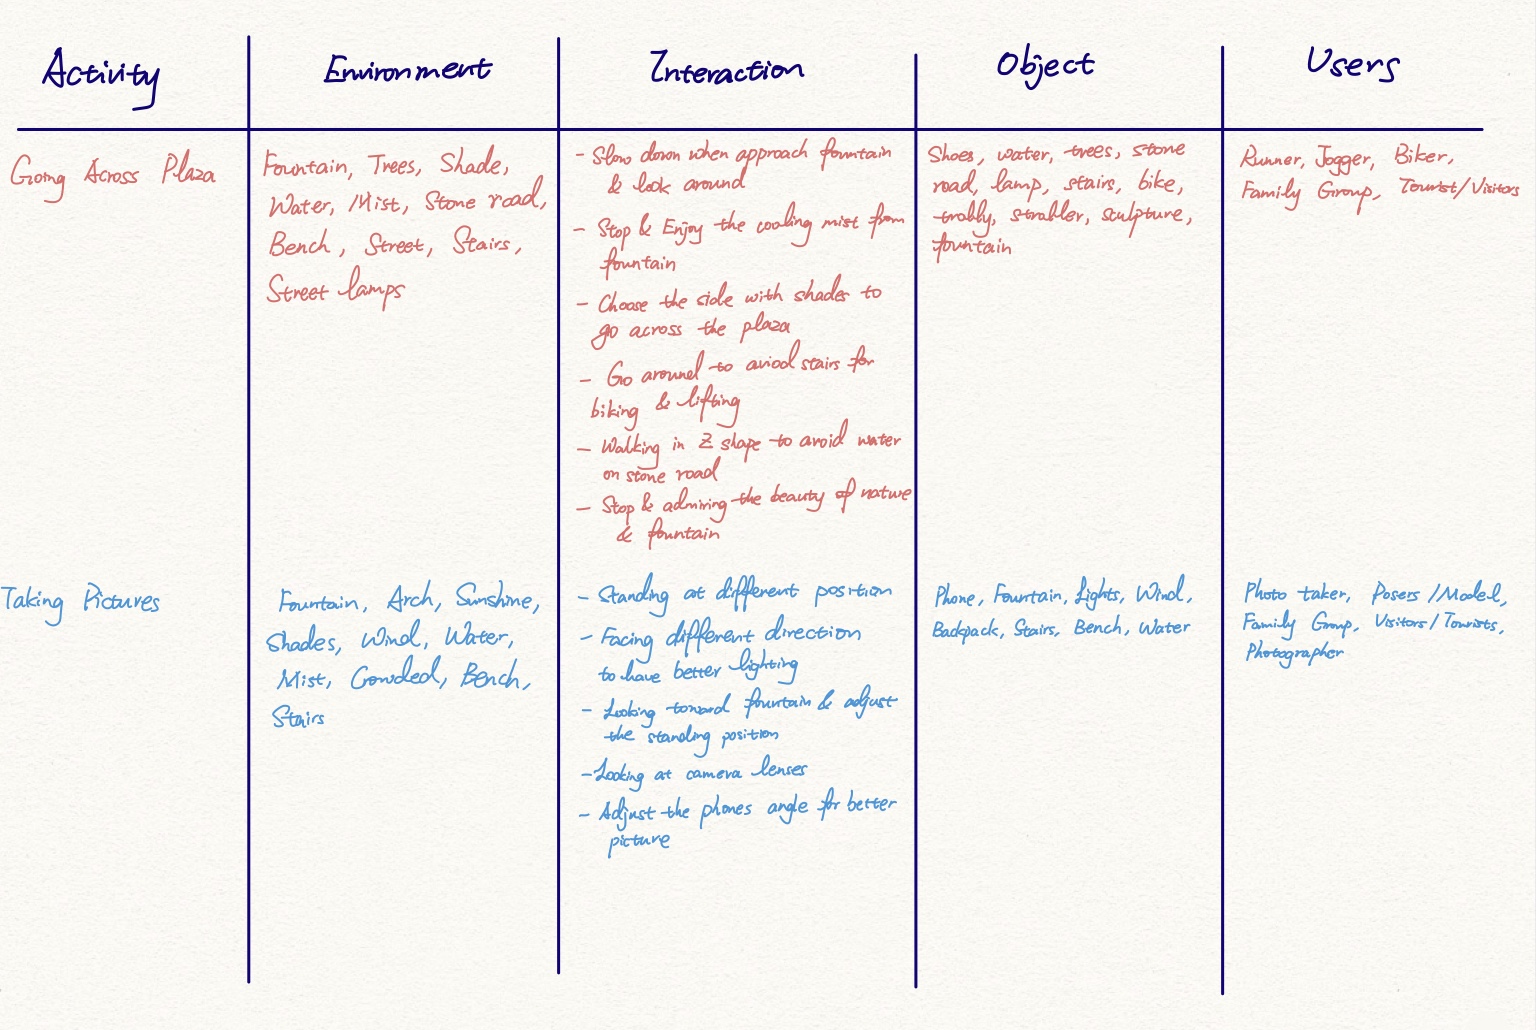 Activity
Environment
Interaction
Object
Users
Going Across Plaza
Fountain, Trees, Shade,
Water, Mist, Stone road,
Bench, Street, Stairs,
Street lamps
- Slow down when approach fountain
& look around
- Stop & Enjoy the cooling mist from
fountain
- Choose the side with shades to
go across the plaza
- Go around to aviod stairs for
biking & lifting
- Walking in Z shape to avoid water
on stone road
- Stop & admiring the beauty of nature
& fountain
Shoes, water, trees, stone
road, lamp, stairs, bike,
trolly, stroller, sculpture,
fountain
Runner, Jogger, Biker,
Family Group, Tourist/Visitors
Taking Pictures
Fountain, Arch, Sunshine,
Shades, Wind, Water,
Mist, Crowded, Bench,
Stairs
- Standing at different position
- Facing different direction
to have better lighting
- Looking toward fountain & adjust
the standing position
- Looking at camera lenses
- Adjust the phones angle for better
picture
Phone, Fountain, Lights, Wind,
Backpack, Stairs, Bench, Water
Photo taker, Posers/Model,
Family Group, Visitors/Tourists,
Photographer